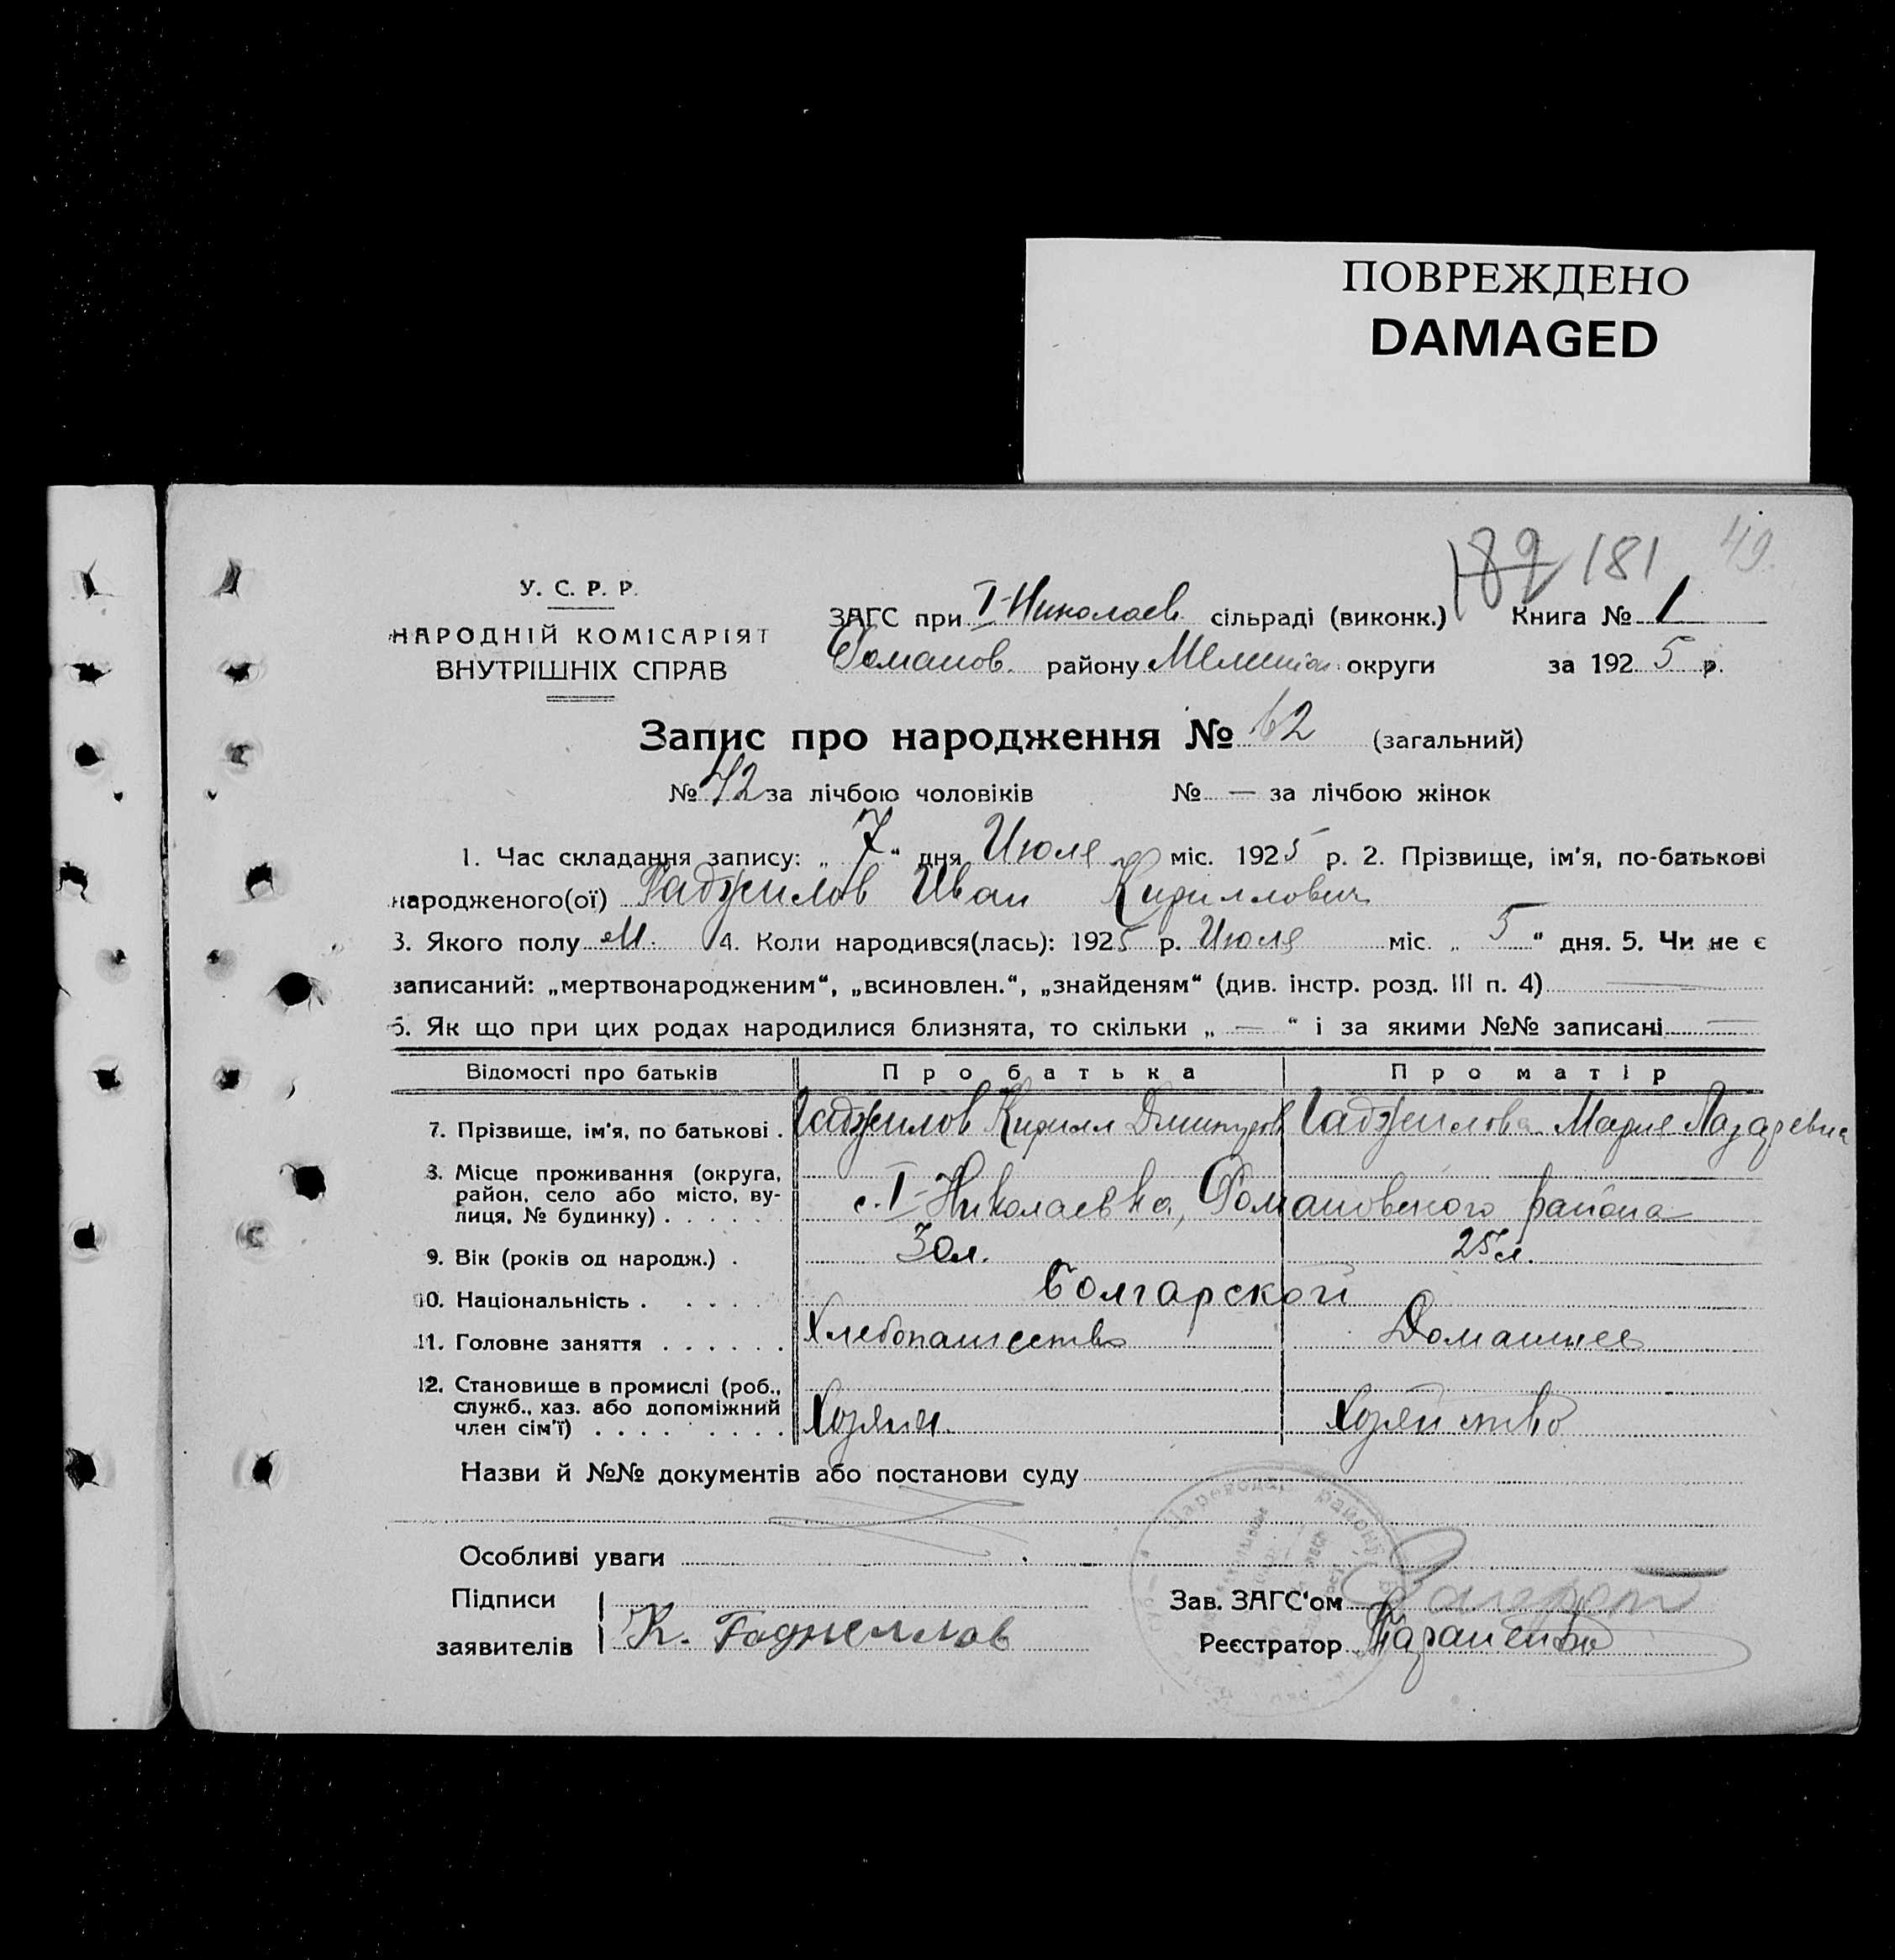 ПОВРЕЖДЕНО
DAMAGED
182 181 49.
У. С. Р. Р.
НАРОДНІЙ КОМІСАРІЯТ
ВНУТРІШНІХ СПРАВ
ЗАГС при I-Николаев. сільраді (виконк.) Книга № 1
Романов. району Мелитоп. округи за 1925 р.
Запис про народження № 62 (загальний)
№ 42 за лічбою чоловіків № — за лічбою жінок
1. Час складання запису: „ 7 “ дня Июля міс. 1925 р. 2. Прізвище, ім'я, по-батькові
народженого(ої) Гаджилов Иван Кириллович
3. Якого полу М. 4. Коли народився(лась): 1925 р. Июля міс. „ 5 “ дня. 5. Чи не є
записаний: „мертвонародженим“, „всиновлен.“, „знайденям“ (див. інстр. розд. III п. 4) —
6. Як що при цих родах народилися близнята, то скільки „ — “ і за якими №№ записані —
Відомості про батьків Про батька Про матір
7. Прізвище, ім'я, по батькові . Гаджилов Кирилл Дмитров Гаджилова Мария Лазаревна
8. Місце проживання (округа,
район, село або місто, ву-
лиця, № будинку) . . . . . . с. I-Николаевка, Романовского района
9. Вік (років од народж.) . 30 л. 25 л.
10. Національність . . . . . Болгарской
11. Головне заняття . . . . . . Хлебопашество Домашнее
12. Становище в промислі (роб.,
служб., хаз. або допоміжний
член сім'ї) . . . . . . . . Хозяин. Хозяйство
Назви й №№ документів або постанови суду
Особливі уваги
Підписи
заявителів К. Гаджилов
Зав. ЗАГС'ом
Реєстратор
району